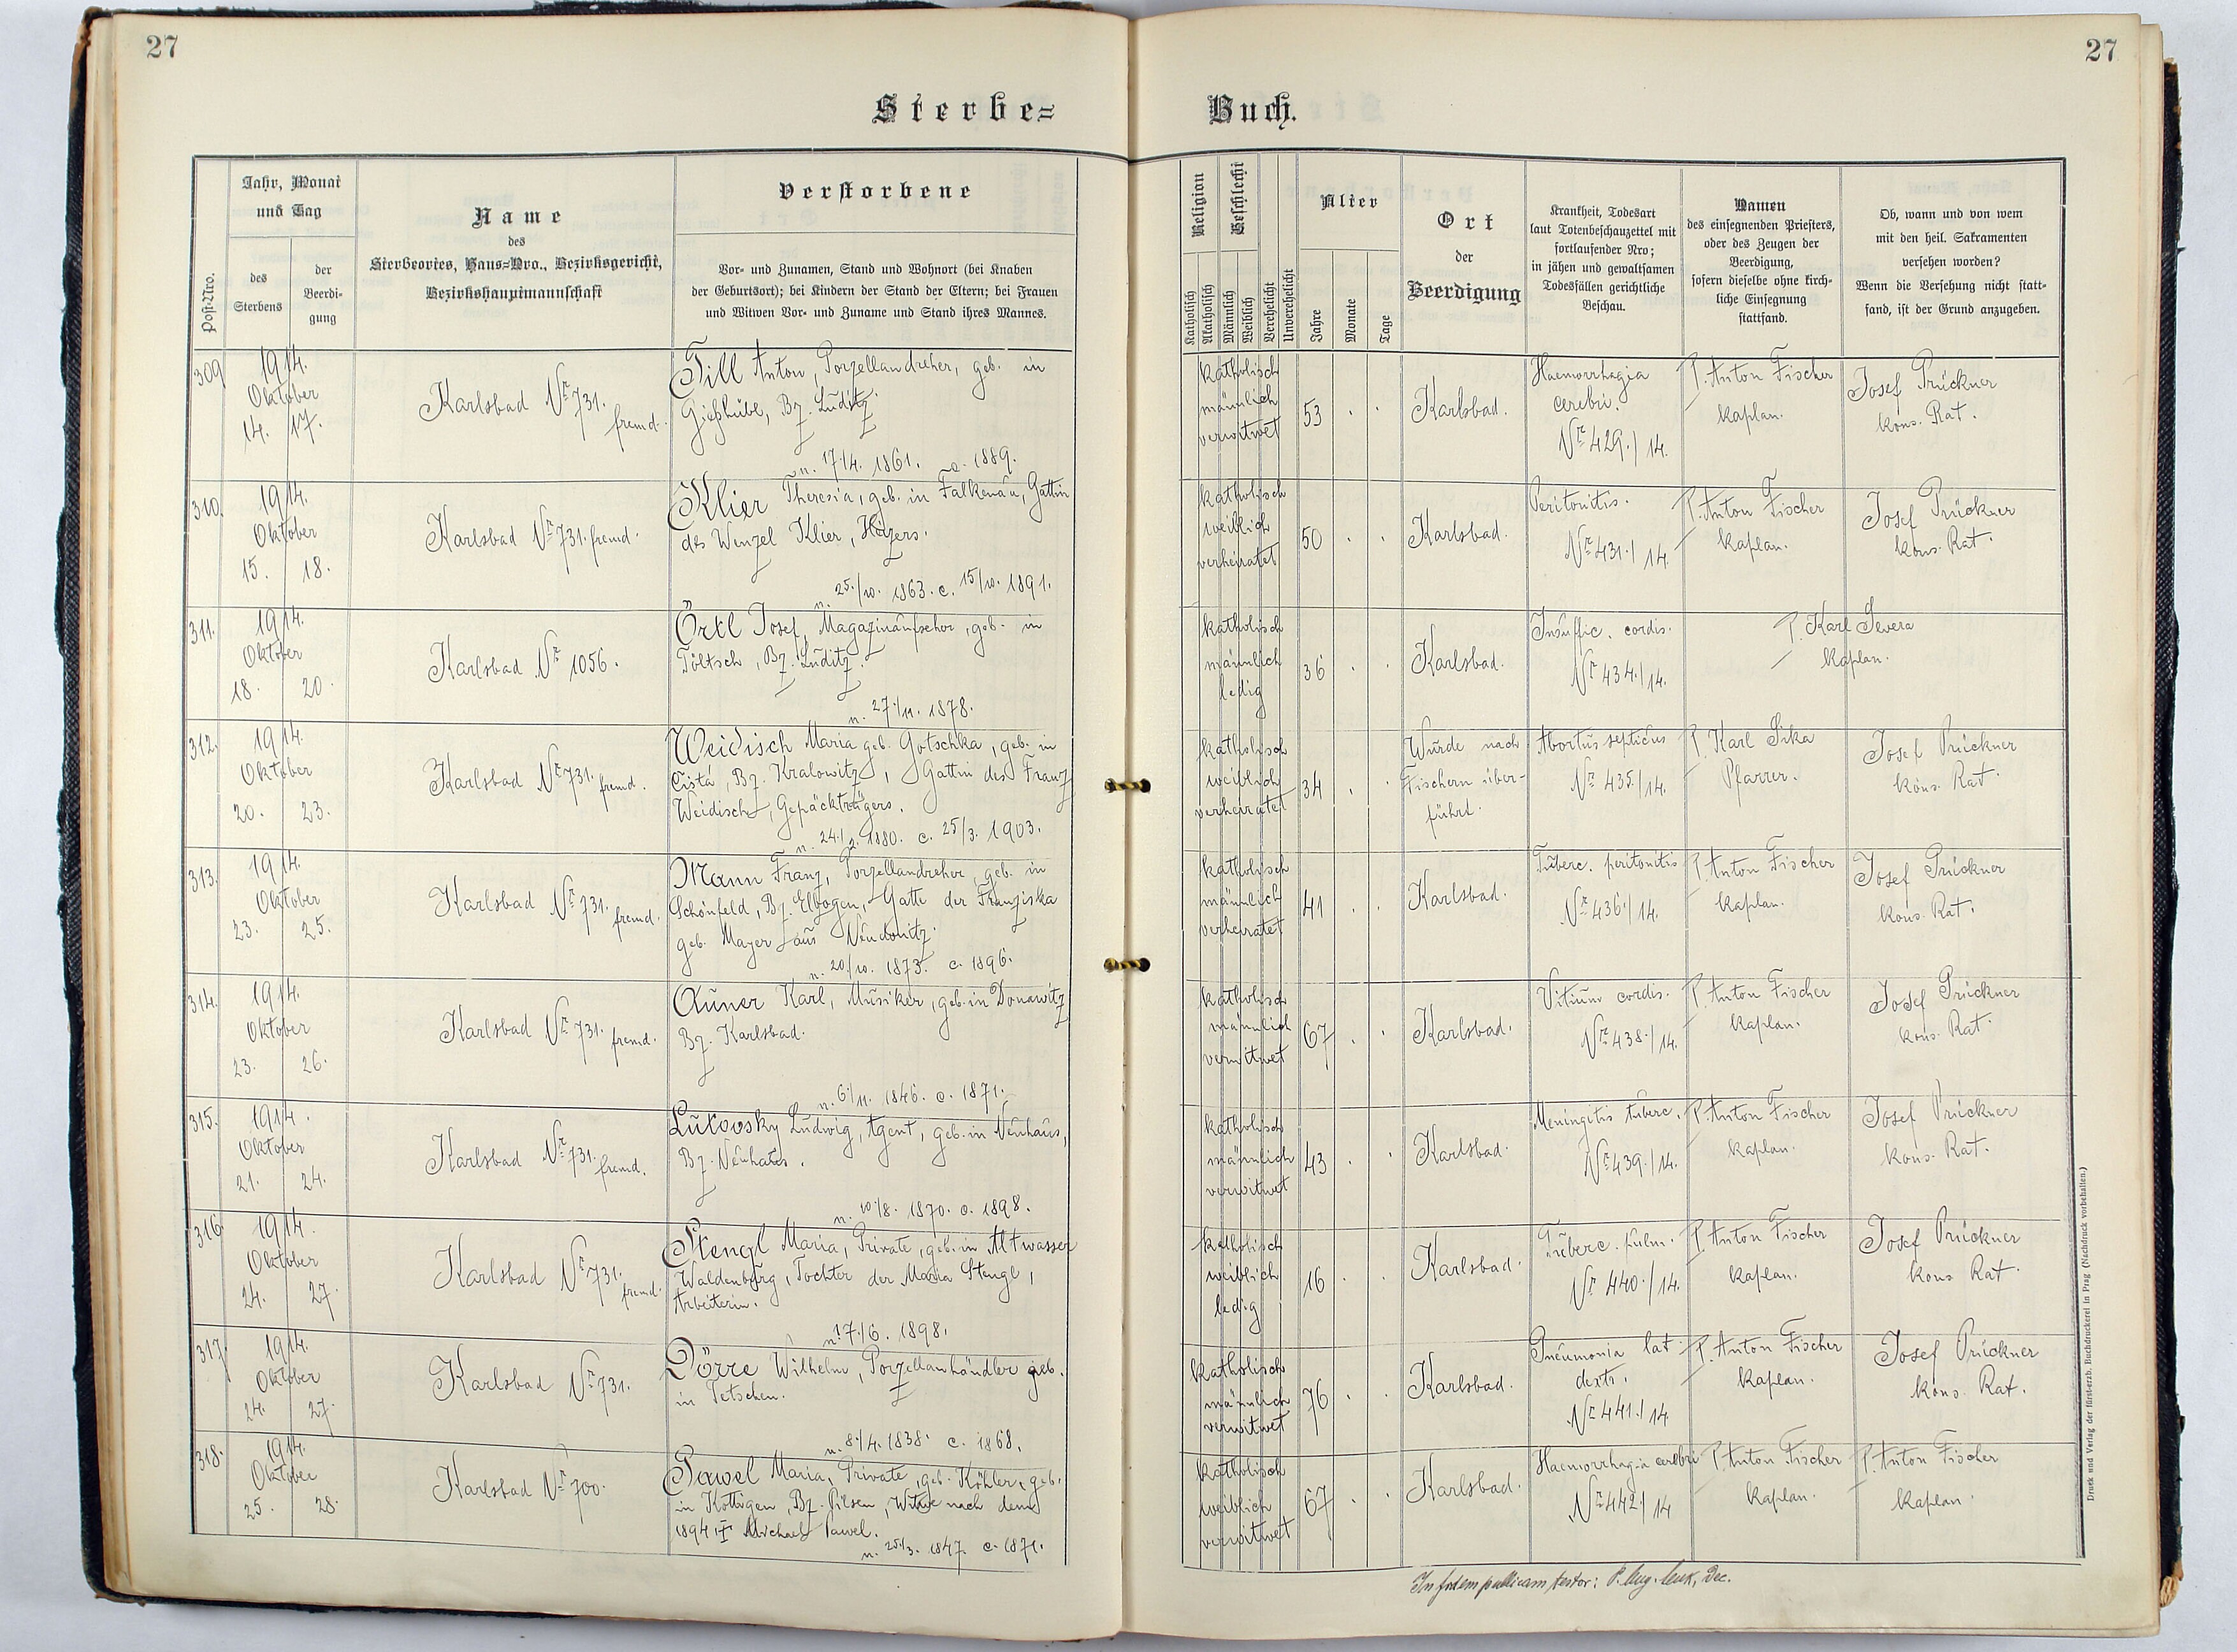 27
27
Sterbe=
Buch.
Post-Nro.
Jahr, Monat
und Tag
des
Sterbens
der
Beerdi-
gung
Name
des
Sterbeortes, Haus=Nro., Bezirksgericht,
Bezirkshauptmannschaft
Verstorbene
Vor- und Zunamen, Stand und Wohnort (bei Knaben
der Geburtsort); bei Kindern der Stand der Eltern; bei Frauen
und Witwen Vor- und Zuname und Stand ihres Mannes.
Religion
Katholisch
Akatholisch
Geschlecht
Männlich
Weiblich
Verehelicht
Unverehelicht
Alter
Jahre
Monate
Tage
Ort
der
Beerdigung
Krankheit, Todesart
laut Totenbeschauzettel mit
fortlaufender Nro;
in jähen und gewaltsamen
Todesfällen gerichtliche
Beschau.
Namen
des einsegnenden Priesters,
oder des Zeugen der
Beerdigung,
sofern dieselbe ohne kirch-
liche Einsegnung
stattfand.
Ob, wann und von wem
mit den heil. Sakramenten
versehen worden?
Wenn die Versehung nicht statt-
fand, ist der Grund anzugeben.
309
1914.
Oktober
14. 17.
Karlsbad Nr 731.
fremd.
Till Anton, Porzellandreher, geb. in
Gießhübl, Bz. Luditz.
n. 17/4. 1861. c. 1889.
katholisch
männlich
verwitwet
53
Karlsbad.
Haemorrhagia
cerebri.
Nr 429./14.
P. Anton Fischer
kaplan.
Josef Prückner
kons. Rat.
310.
1914.
Oktober
15. 18.
Karlsbad Nr 731. fremd.
Klier Theresia, geb. in Falkenau, Gattin
des Wenzel Klier, Heizers.
n. 25./10. 1863. c. 15/10. 1891.
katholisch
weiblich
verheiratet
50
Karlsbad.
Peritonitis.
Nr 431./14.
P. Anton Fischer
kaplan.
Josef Prückner
kons. Rat.
311.
1914.
Oktober
18. 20.
Karlsbad Nr 1056.
Örtl Josef, Magazinaufseher, geb. in
Töltsch, Bz. Luditz.
n. 27./11. 1878.
katholisch
männlich
ledig
36
Karlsbad.
Insuffic. cordis.
Nr 434./14.
P. Karl Severa
kaplan.
312.
1914.
Oktober
20. 23.
Karlsbad Nr 731. fremd.
Weidisch Maria geb. Gotschka, geb. in
Čistá, Bz. Kralowitz, Gattin des Franz
Weidisch, Gepäckträgers.
n. 24./2. 1880. c. 25/3. 1903.
katholisch
weiblich
verheiratet
34
Wurde nach
Fischern über-
führt.
Abortus septicus
Nr 435./14.
P. Karl Sika
Pfarrer.
Josef Prückner
kons. Rat.
313.
1914.
Oktober
23. 25.
Karlsbad Nr 731.
fremd.
Mann Franz, Porzellandreher, geb. in
Schönfeld, Bz. Elbogen, Gatte der Franziska
geb. Mayer aus Neudonitz.
n. 20/10. 1873. c. 1896.
katholisch
männlich
verheiratet
41
Karlsbad.
Tuberc. peritonitis
Nr 436./14.
P. Anton Fischer
kaplan.
Josef Prückner
kons. Rat.
314.
1914.
Oktober
23. 26.
Karlsbad Nr 731. fremd.
Auner Karl, Musiker, geb. in Donawitz
Bz. Karlsbad.
n. 6./11. 1846. c. 1871.
katholisch
männlich
verwitwet
67
Karlsbad.
Vitium cordis.
Nr 438./14.
P. Anton Fischer
kaplan.
Josef Prückner
kons. Rat.
315.
1914.
Oktober
21. 24.
Karlsbad Nr 731. fremd.
Lukovsky Ludwig, Agent, geb. in Neuhaus,
Bz. Neuhaus.
n. 10/8. 1870. c. 1898.
katholisch
männlich
verwitwet
43
Karlsbad.
Meningitis tuberc.
Nr 439./14.
P. Anton Fischer
kaplan.
Josef Prückner
kons. Rat.
316.
1914.
Oktober
24. 27.
Karlsbad Nr 731.
fremd.
Stengl Maria, Private, geb. in Altwasser
Waldenburg, Tochter der Maria Stengl,
Arbeiterin.
n. 17./6. 1898.
katholisch
weiblich
ledig
16
Karlsbad.
Tuberc. pulm.
Nr 440./14.
P. Anton Fischer
kaplan.
Josef Prückner
kons. Rat.
317.
1914.
Oktober
24. 27.
Karlsbad Nr 731.
Dörre Wilhelm, Porzellanhändler geb.
in Tetschen.
n. 8./4. 1838. c. 1868.
katholisch
männlich
verwitwet
76
Karlsbad.
Pneumonia lat.
dextr.
Nr 441./14
P. Anton Fischer
kaplan.
Josef Prückner
kons. Rat.
318.
1914.
Oktober
25. 28.
Karlsbad Nr 700.
Pawel Maria, Private, geb. Köhler, geb.
in Kottigen, Bz. Pilsen, Witwe nach dem
1894 † Michael Pawel.
n. 25./3. 1847. c. 1871.
katholisch
weiblich
verwitwet
67
Karlsbad.
Haemorrhagia cerebri
Nr 442./14
P. Anton Fischer
kaplan.
P. Anton Fischer
kaplan.
In fidem publicam testor: P. Aug. , Dec.
Druck und Verlag der fürst-erzb. Buchdruckerei in Prag (Nachdruck vorbehalten.)